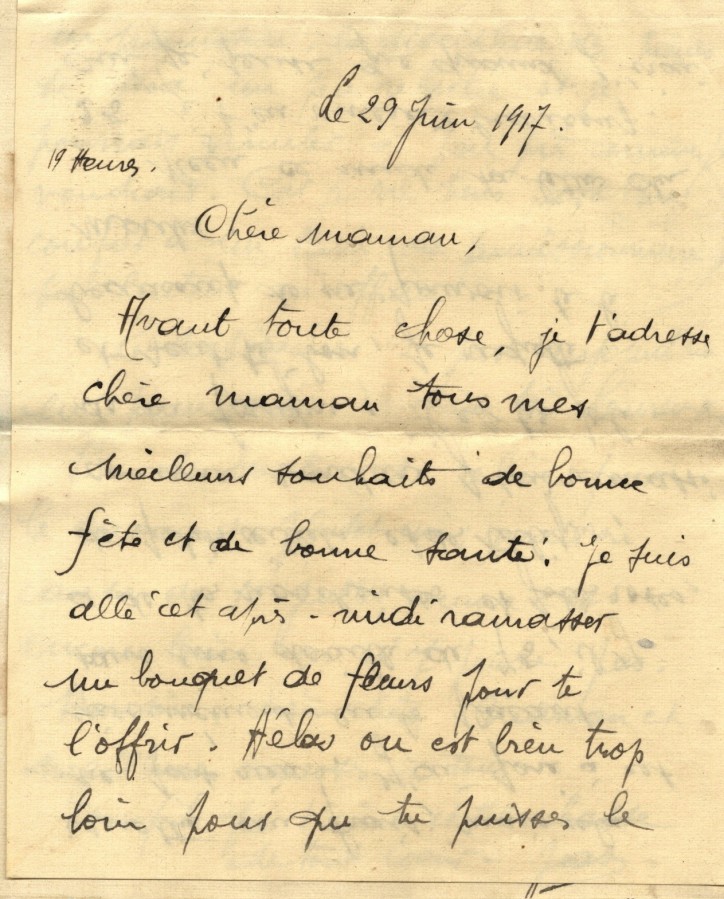 Le 29 Juin 1917.
19 Heures.
Chère maman,
Avant toute chose, je t'adresse
chère maman tous mes
meilleurs souhaits de bonne
fête et de bonne santé. Je suis
allé cet après-midi ramasser
un bouquet de fleurs pour te
l'offrir. Hélas on est bien trop
loin pour que tu puisses le